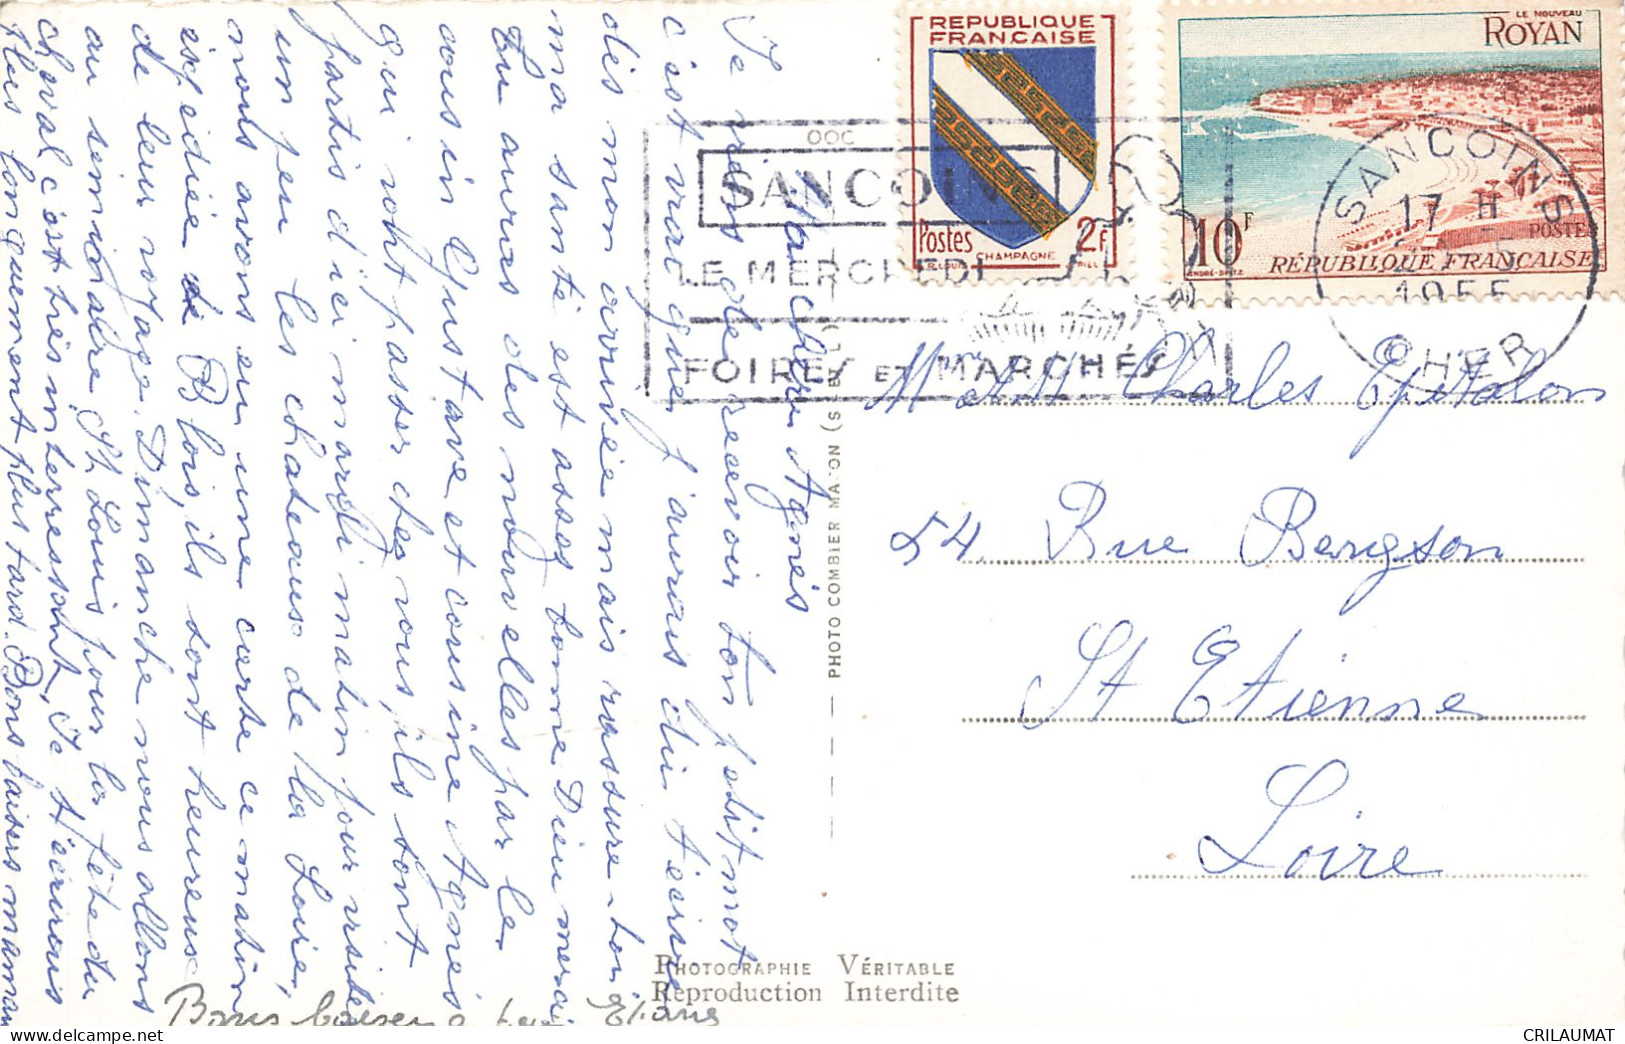 Ma chère Agnès
Je viens de recevoir ton petit mot
c'est vrai que j'aurais du t'écrire
dès mon arrivée mais rassure-toi
ma santé est assez bonne Dieu merci
Tu auras des nouvelles par le
cousin Gustave et cousine Agnès
qui vont passer chez vous, ils sont
partis d'ici mardi matin pour visiter
un peu les chateaux de la Loire,
nous avons eu une carte ce matin
expédiée de Blois, ils sont heureux
de leur voyage. Dimanche nous allons
au séminaire St Louis pour la fête du
cheval c'est très interressant, Je t'écrirais
plus longuement plus tard. Bons baisers maman
Bons baisers
Eliane
REPUBLIQUE
FRANCAISE
Postes
2F
CHAMPAGNE
LE NOUVEAU
ROYAN
10F
POSTES
RÉPUBLIQUE FRANÇAISE
SANCOINS
LE MERCREDI
FOIRES ET MARCHÉS
SANCOINS
17 H
1955
CHER
Charles Epitalon
54 Rue Bergson
St Etienne
Loire
PHOTO COMBIER MACON
PHOTOGRAPHIE VÉRITABLE
Reproduction Interdite
CRILAUMAT